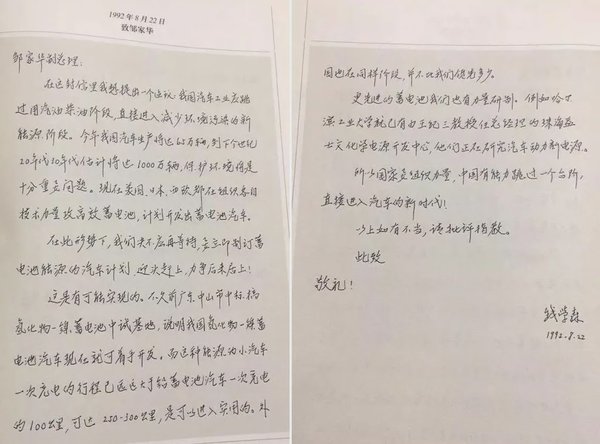 1992年8月22日
致邹家华
邹家华副总理：
在这封信里我想提出一个建议：我国汽车工业应跳
过用汽油柴油阶段，直接进入减少环境污染的新
能源阶段。今年我国汽车生产将达62万辆，到下个世纪
20年代30年代估计将达1000万辆，保护环境将是
十分重立问题。现在美国、日本、西欧都在组织各自
技术力量攻高效蓄电池，计划开发出蓄电池汽车。
在此形势下，我们决不应再等待，应立即制订蓄
电池能源的汽车计划，迎头赶上，力争后来居上！
这是有可能实现的。不久前广东中山市中标，搞
氢化物—镍蓄电池中试基地，说明我国氢化物—镍蓄
电池汽车现在就可着手开发。而这种能源的小汽车
一次充电的行程已远远大于铅蓄电池汽车一次充电
的100公里，可达 250-300公里，是可以进入实用的。外
国也在同样阶段，并不比我们优先多少。
更先进的蓄电池我们也有力量研制。例如哈尔
滨工业大学就已有由王纪三教授任总经理的珠海益
士文化学电源开发中心，他们正在研究汽车动力新电源。
所以国家应组织力量，中国有能力跳过一个台阶，
直接进入汽车的新时代！
以上如有不当，请批评指教。
此致
敬礼！
钱学森
1992.8.22